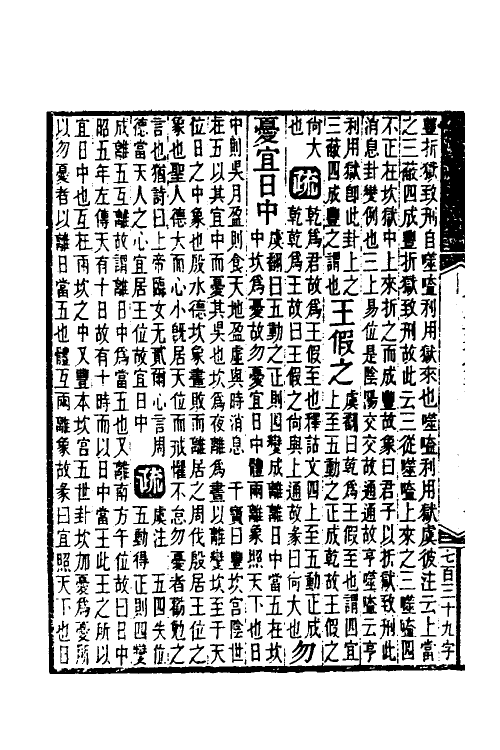 豐折獄致刑自噬嗑利用獄來也噬嗑利用獄虞彼注云上當
之三蔽四成豐折獄致刑故此云三從噬嗑上來之三噬嗑四
不正在坎獄中上來折之而成豐故象曰君子以折獄致刑此
消息卦變例也三上易位是陰陽交交故通通故亨噬嗑云亨
利用獄卽此卦上之
三蔽四成豐之謂也
王假之
虞翻曰乾爲王假至也謂四宜
上至五動之正成乾故王假之
尙大
也
疏
乾爲君故爲王假至也釋詁文四上至五動正成
乾乾爲王故曰王假之尙與上通故彖曰尙大也
勿
憂宜日中
虞翻曰五動之正則四變成離離日中當五在坎
中坎爲憂故勿憂宜日中體兩離象照天下也日
中則昃月盈則食天地盈虛與時消息 干寶曰豐坎宮陰世
在五以其宜中而憂其昃也坎爲夜離爲晝以離變坎至于天
位日之中象也殷水德坎象晝敗而離居之周伐殷居王位之
象也聖人德大而心小旣居天位而戒懼不怠勿憂者猶勉之
言也猶詩曰上帝臨女无貳爾心言周
德當天人之心宜居王位故宜日中
疏
虞注 五四失位
五動得正則四變
成離五互離故謂離日中爲當五也又離南方午位故曰日中
昭五年左傳天有十日故有十時而以日中當王此王之所以
宜日中也互在兩坎之中又豐本坎宮五世卦坎加憂爲憂所
以勿憂者以離日當五也體互兩離象故彖曰宜照天下也日
七百三十九字